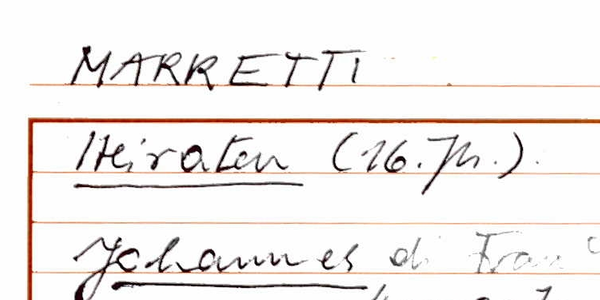 MARRETTI
Heiraten (16. Jh.).
Johannes di